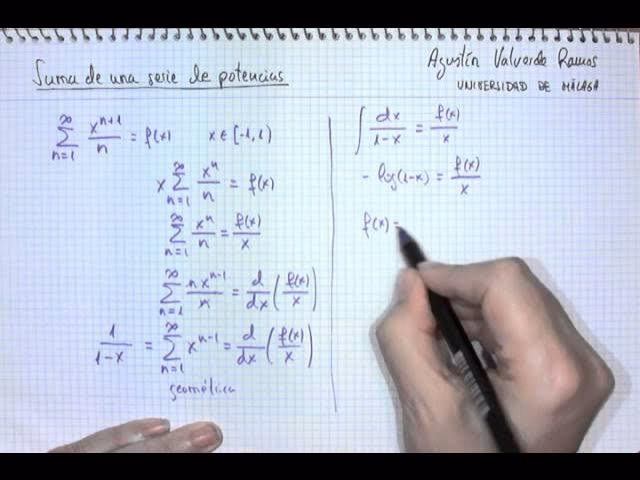 Suma de una serie de potencias
Agustín Valverde Ramos
UNIVERSIDAD DE MÁLAGA
∑_{n=1}^{∞} x^{n+1}/n = f(x)   x ∈ [-1, 1)
x ∑_{n=1}^{∞} x^n/n = f(x)
∑_{n=1}^{∞} x^n/n = f(x)/x
∑_{n=1}^{∞} n x^{n-1}/n = d/dx (f(x)/x)
1/(1-x) = ∑_{n=1}^{∞} x^{n-1} = d/dx (f(x)/x)
geométrica
∫ dx/(1-x) = f(x)/x
- log(1-x) = f(x)/x
f(x) =